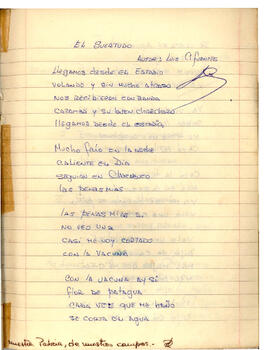 EL BURATUDO
AUTOR: LUIS CIFUENTES
LLEGAMOS DESDE EL ESTADIO
VOLANDO Y SIN MUCHO ATRASO
NOS RECIBIERON CON BANDA
CAZAMAS Y SU BUEN CHARCHAZO
LLEGAMOS DESDE EL ESTADIO,
MUCHO FRÍO EN LA NOCHE
CALIENTE EN DÍA
SEGUIAN EN CHACABUCO
LAS PENAS MÍAS
LAS PENAS MÍAS SI
NO VEO UNA
CASI ME VOY CORTADO
CON LA VACUNA
CON LA VACUNA AY SÍ
FLOR DE PATAGUA
CADA VEZ QUE ME BAÑO
SE CORTA EL AGUA
nuestra Patria, de nuestros campos.-